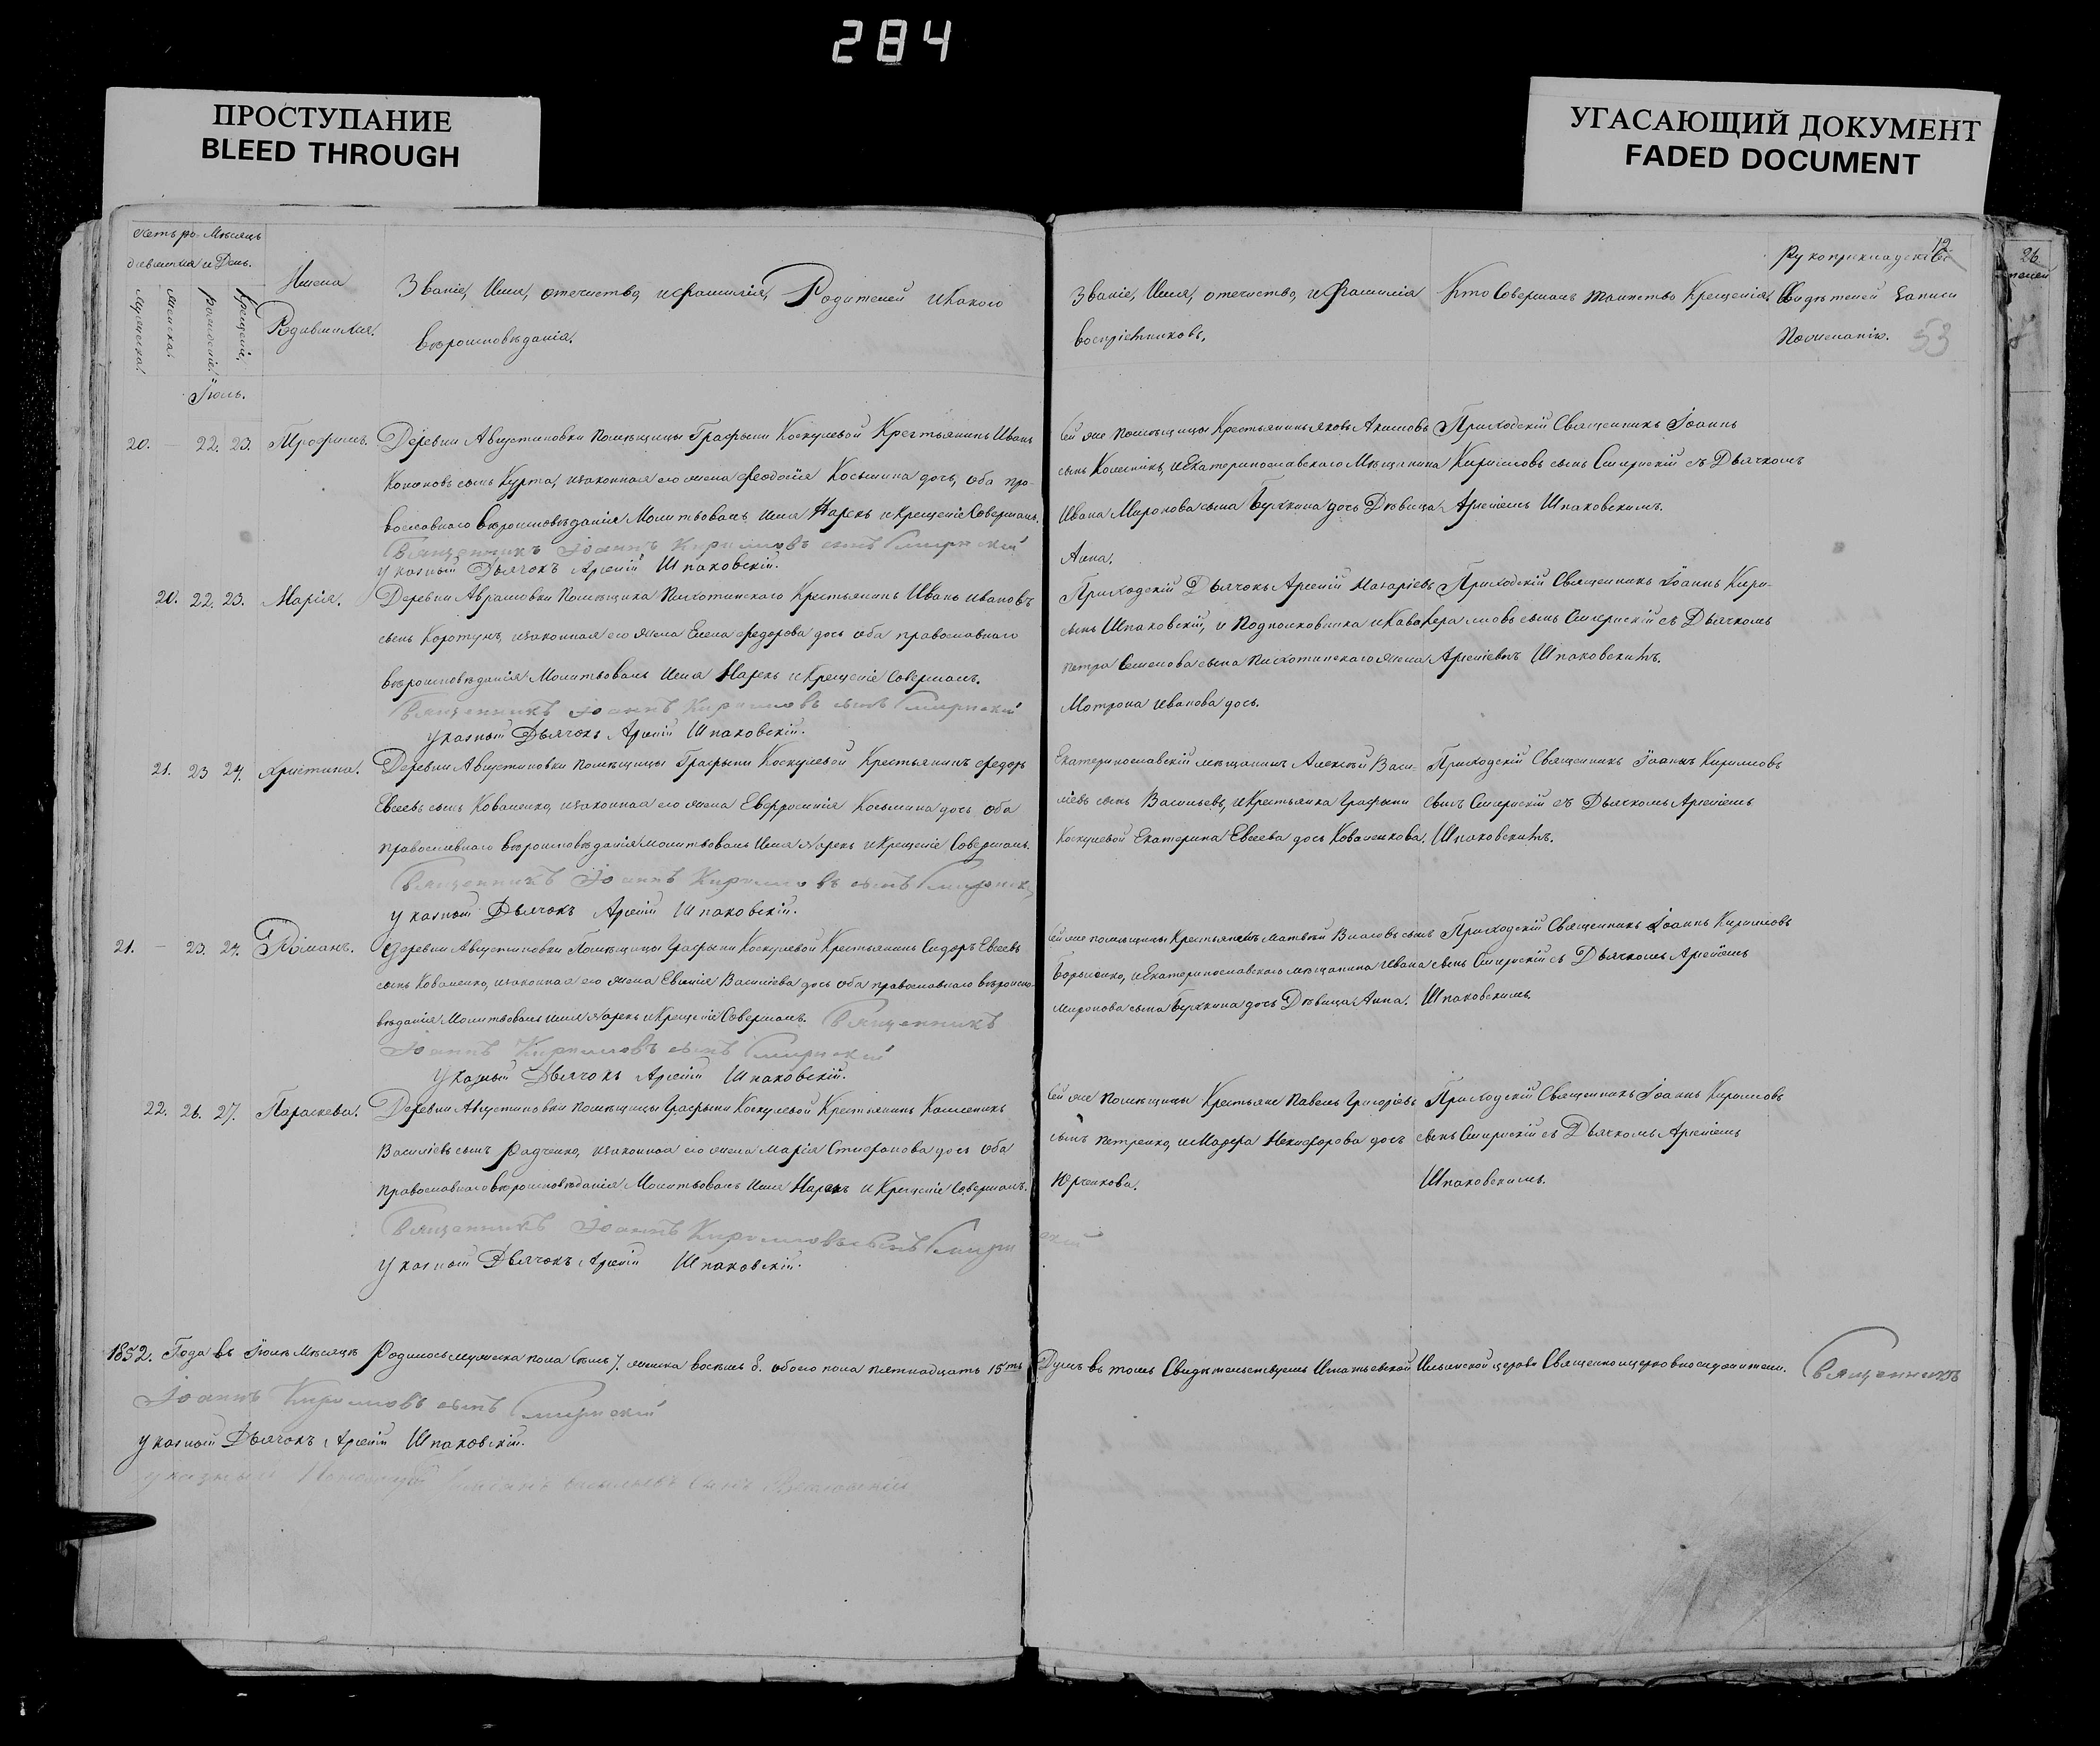 284
ПРОСТУПАНИЕ
BLEED THROUGH
УГАСАЮЩИЙ ДОКУМЕНТ
FADED DOCUMENT
12
26
53
Мѣсяцъ
и День.
Имена
Родившихся.
Званіе, Имя, отечество, и Фамилія, Родителей и какого
вѣроисповѣданія.
Званіе, Имя, отечество, и Фамилія
воспріемниковъ.
Кто Совершалъ таинство Крещенія.
Рукоприкладство
Свидѣтелей записи
По желанію.
Іюль.
20. 22. 23. Трофимъ.
Деревни Августиновки помѣщицы Графыни Коскулевой Крестьянинъ Иванъ
Кононовъ сынъ Курта, и законная его жена Феодосія Косьмина дочь, оба пра-
вославнаго вѣроисповѣданія Молитвовалъ Имя Нарекъ и Крещеніе Совершалъ.
Священникъ Іоаннъ Кириловъ сынъ Смирнскій
указный Дьячокъ Арсеній Шпаковскій.
сей же помѣщицы Крестьянинъ Яковъ Акимовъ
сынъ Колесникъ, и Екатеринославскаго Мѣщанина
Ивана Миронова сына Бужкина дочь Дѣвица
Анна.
Приходскій Священникъ Іоаннъ
Кириловъ сынъ Смирнскій съ Дьячкомъ
Арсеніемъ Шпаковскимъ.
20. 22. 23. Марія.
Деревни Аврамовки Помѣщика Пихотинскаго Крестьянинъ Иванъ Ивановъ
сынъ Коротунъ, и законная его жена Елена Федорова дочь оба православнаго
вѣроисповѣданія Молитвовалъ Имя Нарекъ и Крещеніе Совершалъ.
Священникъ Іоаннъ Кириловъ сынъ Смирнскій
указный Дьячокъ Арсеній Шпаковскій.
Приходскій Дьячокъ Арсеній Макаріевъ
сынъ Шпаковскій, и Подполковника и Кавалера
Петра Семенова сына Пихотинскаго жена
Мотрона Иванова дочь.
Приходскій Священникъ Іоаннъ Кири-
ловъ сынъ Смирнскій съ Дьячкомъ
Арсеніевъ Шпаковскимъ.
21. 23 24. Христина.
Деревни Августиновки помѣщицы Графыни Коскулевой Крестьянинъ Федоръ
Евсеевъ сынъ Коваленко, и законная его жена Евфросинія Косьмина дочь оба
православнаго вѣроисповѣданія молитвовалъ Имя Нарекъ и Крещеніе Совершалъ.
Священникъ Іоаннъ Кириловъ сынъ Смирнскій
указный Дьячокъ Арсеній Шпаковскій.
Екатеринославскій мѣщанинъ Алексѣй Васи-
ліевъ сынъ Васильевъ, и Крестьянка Графыни
Коскулевой Екатерина Евсеева дочь Коваленкова.
Приходскій Священникъ Іоаннъ Кириловъ
сынъ Смирнскій съ Дьячкомъ Арсеніемъ
Шпаковскимъ.
21. 23. 24. Романъ.
Деревни Августиновки Помѣщицы Графыни Коскулевой Крестьянинъ Сидоръ Евсеевъ
сынъ Коваленко, и законная его жена Евгенія Василіева дочь оба православнаго вѣроиспо-
вѣданія Молитвовалъ имя Нарекъ и Крещеніе Совершалъ. Священникъ
Іоаннъ Кириловъ сынъ Смирнскій
указный Дьячокъ Арсеній Шпаковскій.
сей же помѣщицы Крестьянинъ Матвѣй Власовъ сынъ
и Екатеринославскаго мѣщанина Ивана
Миронова сына Бужкина дочь Дѣвица Анна.
Приходскій Священникъ Іоаннъ Кириловъ
сынъ Смирнскій съ Дьячкомъ Арсеніемъ
Шпаковскимъ.
22. 26. 27. Параскева.
Деревни Августиновки помѣщицы Графыни Коскулевой Крестьянинъ Калленикъ
Василіевъ сынъ Радченко, и законная его жена Марія Стефанова дочь оба
православнаго вѣроисповѣданія Молитвовалъ Имя Нарекъ и Крещеніе Совершалъ.
Священникъ Іоаннъ Кириловъ сынъ Смирнскій
указный Дьячокъ Арсеній Шпаковскій.
сей же помѣщицы Крестьяне Павелъ Григорьевъ
сынъ Петренко, и Никифорова дочь
Юрченкова.
Приходскій Священникъ Іоаннъ Кириловъ
сынъ Смирнскій съ Дьячкомъ Арсеніемъ
Шпаковскимъ.
1852. Года въ Іюлѣ Мѣсяцѣ Родилось мужеска пола семь 7. женска восемь 8. обоего пола пятнадцать 15ть Душъ въ томъ Свидѣтельствуемъ Игнатьевской Ильинской церкви Священно и церковнослужители. Священникъ
Іоаннъ Кириловъ сынъ Смирнскій
указный Дьячокъ Арсеній Шпаковскій.
указный Пономарь